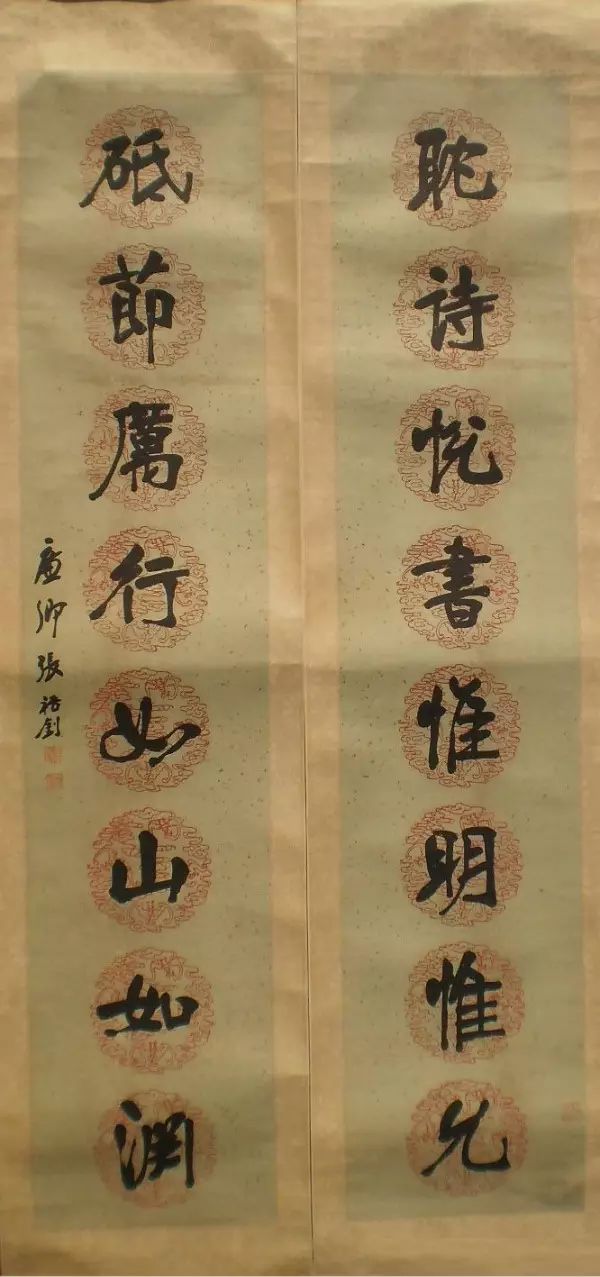 耽詩悅書惟明惟允
砥節厲行如山如淵
廉卿張裕釗